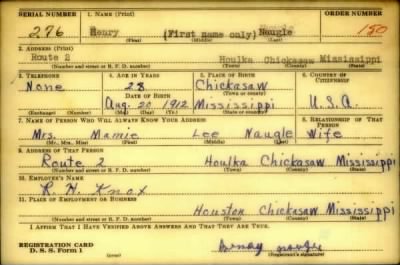 SERIAL NUMBER 1. NAME (Print) ORDER NUMBER
276 Henry (First name only) Naugle 150
(First) (Middle) (Last)
2. ADDRESS (Print)
Route 2 Houlka Chickasaw Mississippi
(Number and street or R. F. D. number) (Town) (County) (State)
3. TELEPHONE 4. AGE IN YEARS 5. PLACE OF BIRTH 6. COUNTRY OF CITIZENSHIP
None 28 Chickasaw
DATE OF BIRTH (Town or county)
Aug. 20, 1912 Mississippi U.S.A.
(Exchange) (Number) (Mo.) (Day) (Yr.) (State or country)
7. NAME OF PERSON WHO WILL ALWAYS KNOW YOUR ADDRESS 8. RELATIONSHIP OF THAT PERSON
Mrs. Mamie Lee Naugle Wife
(Mr., Mrs., Miss) (First) (Middle) (Last)
9. ADDRESS OF THAT PERSON
Route 2 Houlka Chickasaw Mississippi
(Number and street or R. F. D. number) (Town) (County) (State)
10. EMPLOYER'S NAME
R. H. Knox
11. PLACE OF EMPLOYMENT OR BUSINESS
Houston Chickasaw Mississippi
(Number and street or R. F. D. number) (Town) (County) (State)
I AFFIRM THAT I HAVE VERIFIED ABOVE ANSWERS AND THAT THEY ARE TRUE.
REGISTRATION CARD
D. S. S. Form 1 (Registrant's signature)